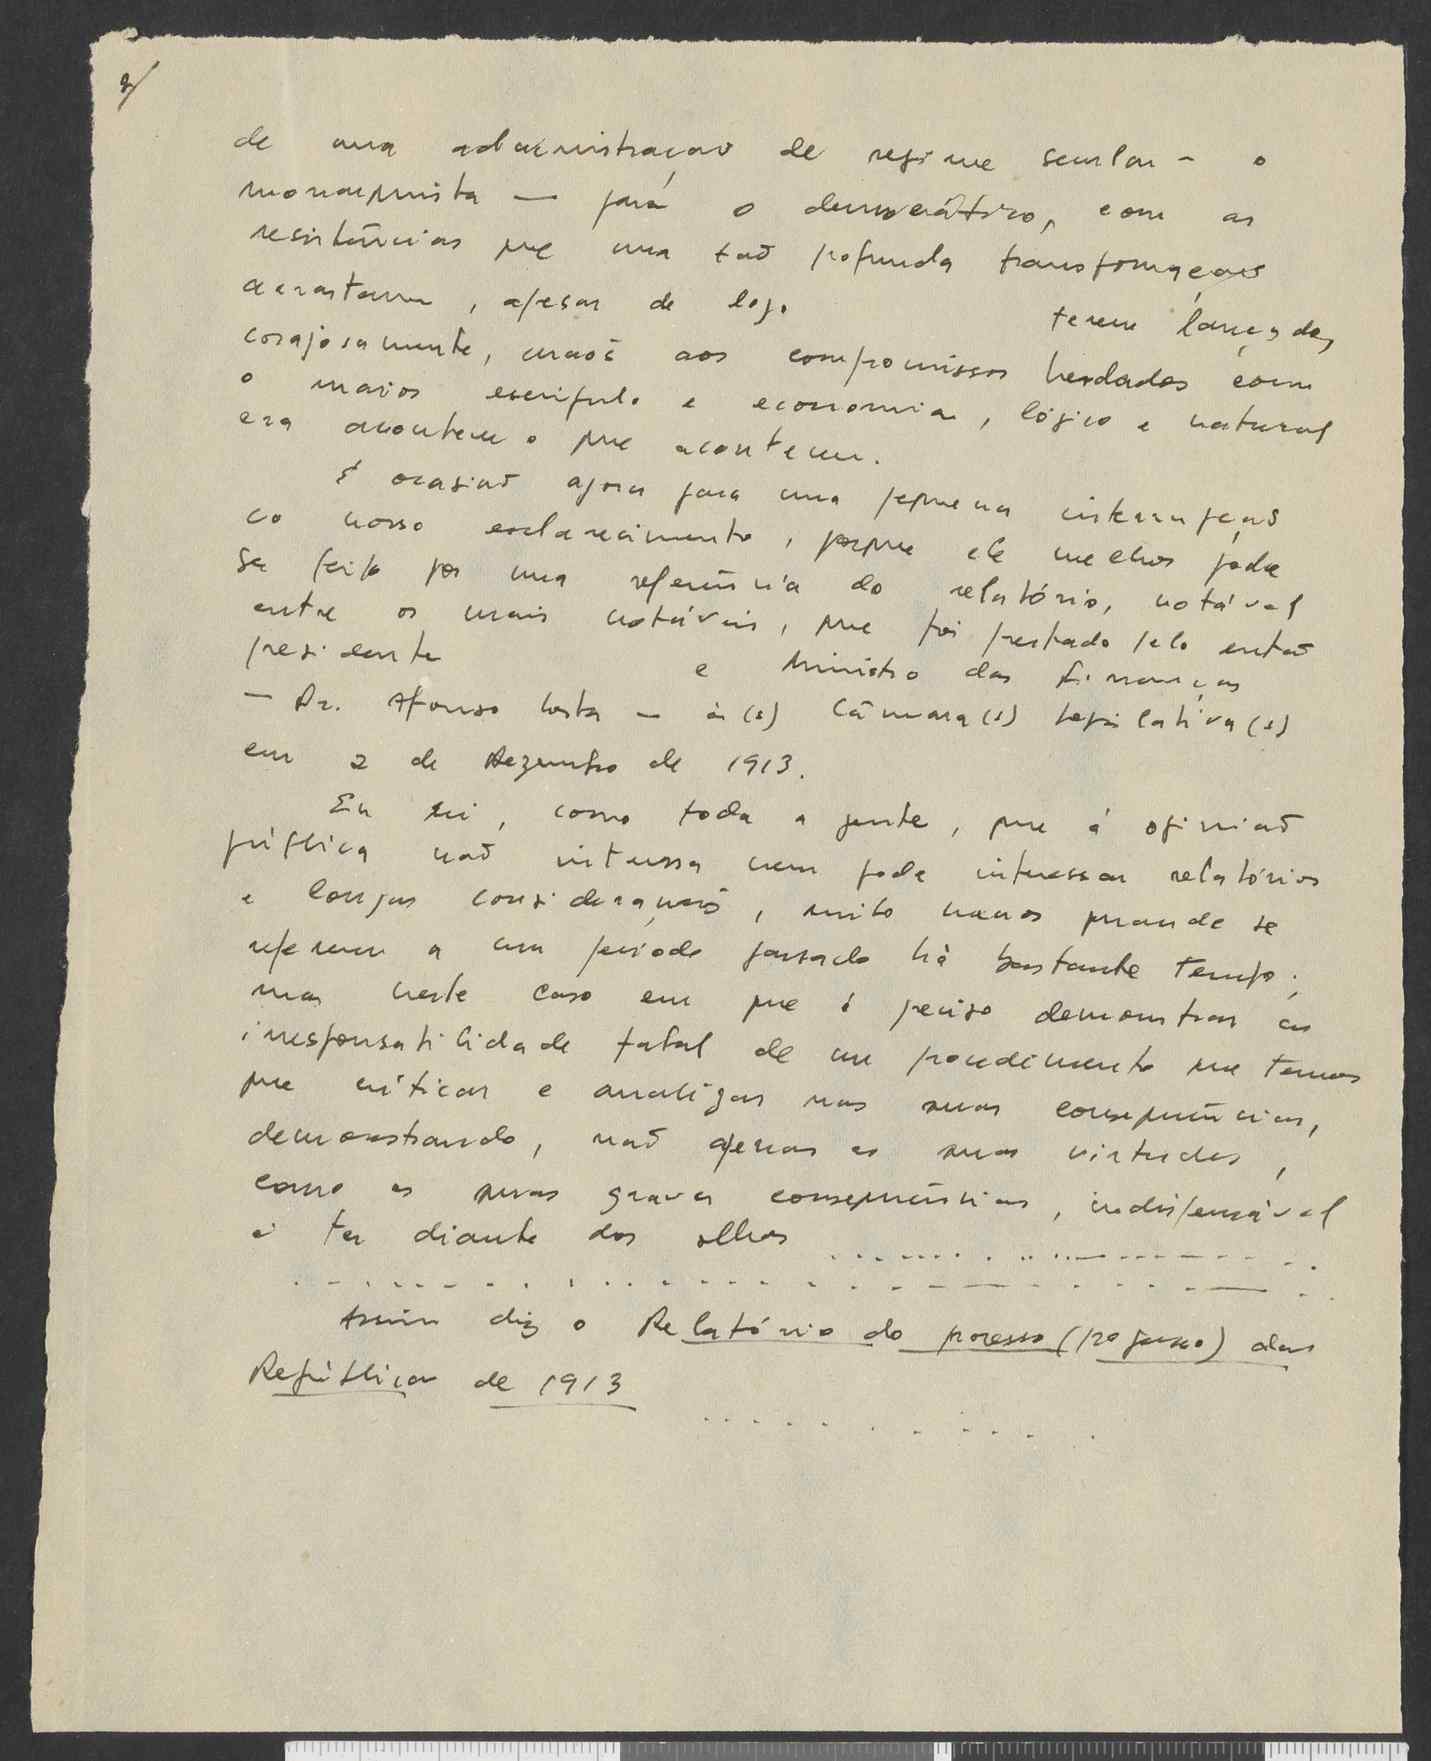 2/
de uma administração de regime secular - o
monarquista — para o democrático, com as
resistências que uma tão profunda transformação
acarretam, apesar de logo terem lançado,
corajosamente, mãos aos compromissos herdados com
o maior escrúpulo e economia, lógico e natural
era acontecer o que aconteceu.
É ocasião agora para uma pequena interrupção
no nosso esclarecimento, porque ele melhor pode
ser feito por uma referência do relatório, notável
entre os mais notáveis, que foi prestado pelo então
presidente e Ministro das Finanças
— Dr. Afonso Costa — à(s) Câmara(s) Legislativa(s)
em 2 de Dezembro de 1913.
Eu sei, como toda a gente, que à opinião
pública não interessa nem pode interessar relatórios
e longas considerações, muito menos quando se
referem a um período passado há bastante tempo;
mas neste caso em que é preciso demonstrar a
irresponsabilidade fatal de um procedimento que temos
que criticar e analizar nas suas consequências,
demonstrando, não apenas as suas virtudes,
como as suas graves consequências, indispensável
é ter diante dos olhos ..............
..............................
Assim diz o Relatório do processo (progresso) das
República de 1913
............